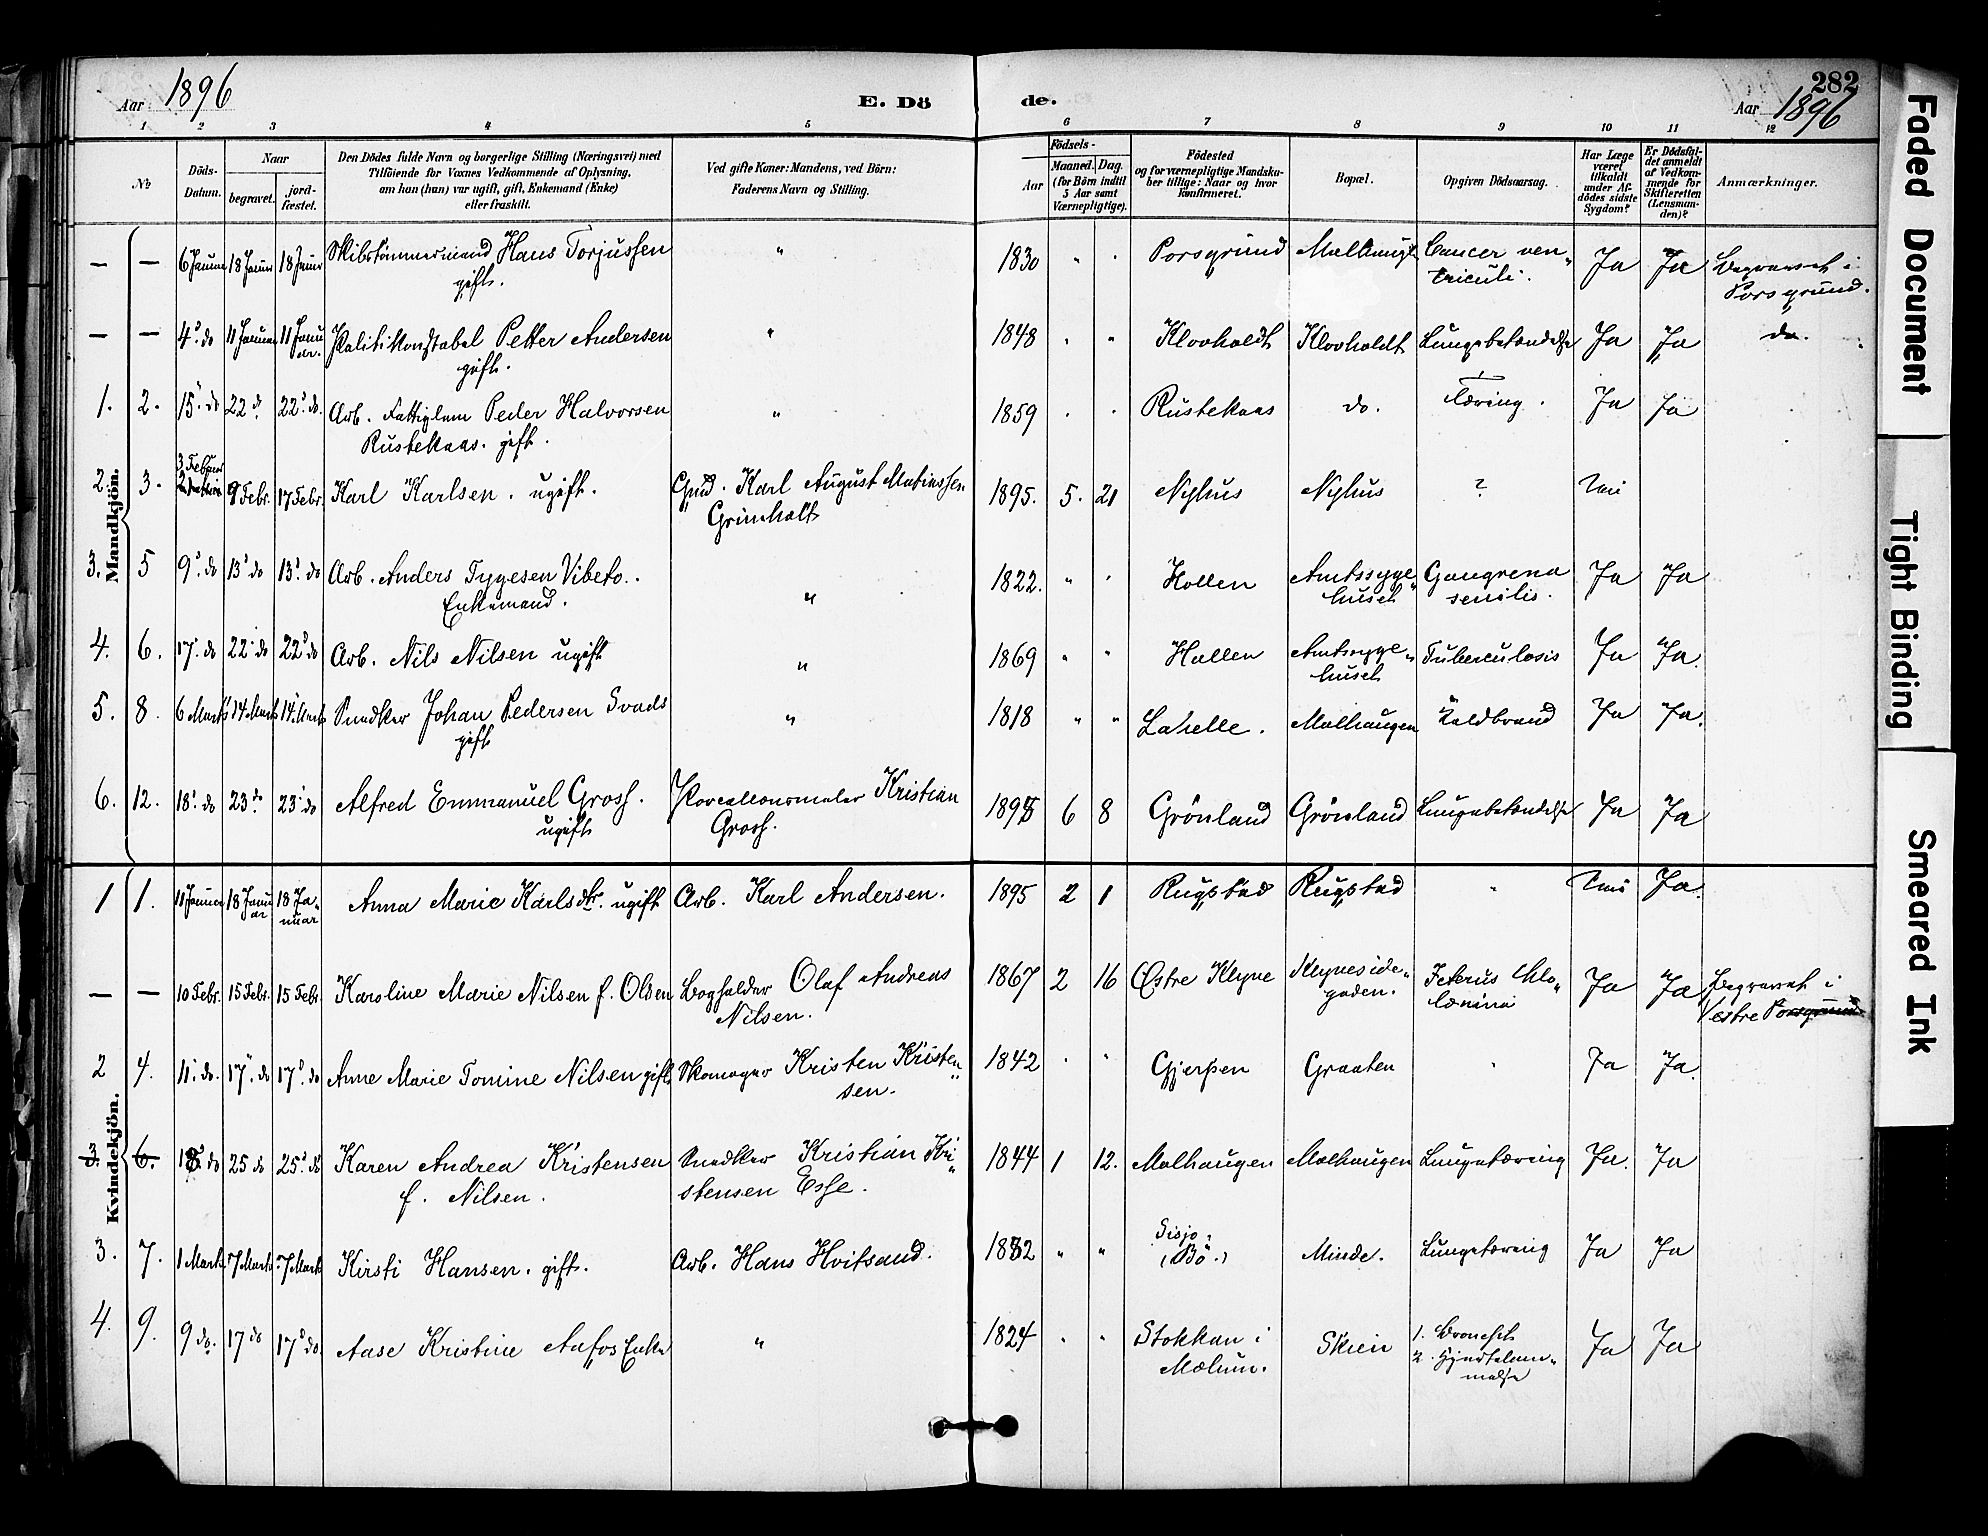 Aar 1896 E. Dö de. 282
Aar 1896
1 2 3 4 5 6 7 8 9 10 11 12
No Döds-Datum. Naar begravet. jord-fæstet.
Den Dödes fulde Navn og borgerlige Stilling (Næringsvei) med
Tilföiende for Voxnes Vedkommende af Oplysning,
om han (hun) var ugift, gift, Enkemand (Enke)
eller fraskilt.
Ved gifte Koner: Mandens, ved Börn:
Faderens Navn og Stilling.
Födsels-
Aar Maaned. Dag.
(for Börn indtil
5 Aar samt
Værnepligtige).
Födested
og for værnepligtige Mandska-
ber tillige: Naar og hvor
konfirmeret.
Bopæl.
Opgiven Dödsaarsag.
Har Læge
været
tilkaldt
under Af-
dödes sidste
Sygdom?
Er Dödsfal-
det anmeldt
af Vedkom-
mende for
Skifteretten
(Lensman-
den)?
Anmærkninger.
Mandkjön.
— — 6 Januar 18 Januar 18 Januar Skibstømmermand Hans Torjussen " 1830 " " Porsgrund Cancer ven„ Ja Ja Begravet i
gift. triculi. Porsgrund.
— — 4de do 11 Januar 11 Janu Politikonstabel Petter Andersen " 1848 " " Klovholdt Klovholdt Lungebetændelse Ja Ja do.
ar. gift.
1. 2. 15 do 22 d. 22 do. Arb. Fattiglem Peder Halvorsen " 1859 " " Rustekaas do. Tæring. Ja Ja
Rustekaas. gift.
2. 3. 3 Februar 9 Febr. 17 Febr. Karl Karlsen. ugift. Gmd. Karl August Matiassen 1895. 5. 21 Nyhus Nyhus ? Nei
Grimholt
3. 5 9 do 13 do 13. do Arb. Anders Tygesen Vibeto. " 1822. " " Hollen Amtssyge„ Gangrena Ja Ja
Enkemand. huset senilis.
4. 6. 17. do 22 do 22 do Arb. Nils Nilsen ugift " 1869 " " Hollen Amtssyge„ Tuberculosis Ja Ja.
huset
5. 8. 6 Marts 14 Marts 14. Marts Snedker Johan Pedersen Svads " 1818 " " Mælhaugen Koldbrand Ja Ja.
gift
6. 12. 18. do 23 do 23 do Alfred Emmanuel Grosf. Porcellænsmaler Kristian 6 8 Grönland Grönland Lungebetændelse Ja Ja
ugift Grosf.
Kvindekjön.
1 1. 11 Januar 18 Janu 18 Ja„ Anna Marie Karlsdtr. ugift Arb. Karl Andersen. 1895 2 1 Rugstad Rugstad " Nei Ja.
ar nuar
— — 10 Febr. 15 Febr. 15 Febr. Karoline Marie Nilsen f. Olsen Bogholder Olaf Andreas 1867 2 16 Østre Klyve Klyveside„ Ja Ja Begravet i
Nilsen. gaden. Vestre Porsgrund
2 4. 11. do. 17. do 17. do Anne Marie Tomine Nilsen gift Skomager Kristen Kristen„ 1842 " " Gjerpen Graaten " Ja Ja.
sen.
3. 6. 18. do 25 do 25. do Karen Andrea Kristensen Snedker Kristian Kri„ 1844 1 12. Mælhaugen Mælhaugen Lungetæring Ja. Ja
f. Nilsen. stensen Esse.
3. 7. 1 Marts. 7 Marts. 7 Marts Kirsti Hansen. gift. Arb. Hans Hvitsand. 1832 " " (Bö.) Minde. Lungetæring Ja Ja
4. 9. 9 do. 17 do 17 do. Aase Kristine Aafos Enke " 1824 " " Stokkan i Skien 1. Ja Ja
Mælum. 2. Hjertelam„
melse
Faded Document
Tight Binding
Smeared Ink